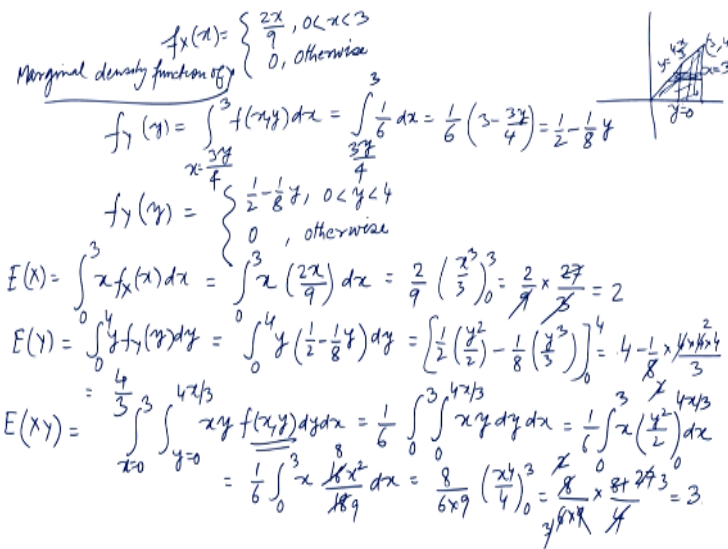 fx(x) = { 2x/9 , 0<x<3
0, otherwise
Marginal density function of y
fy(y) = ∫_{x=3y/4}^{3} f(x,y)dx = ∫_{3y/4}^{3} 1/6 dx = 1/6 (3 - 3y/4) = 1/2 - 1/8 y
fy(y) = { 1/2 - 1/8 y, 0<y<4
0 , otherwise
E(X) = ∫_0^3 x fx(x) dx = ∫_0^3 x (2x/9) dx = 2/9 (x^3/3)_0^3 = 2/9 × 27/3 = 2
E(Y) = ∫_0^4 y fy(y) dy = ∫_0^4 y (1/2 - 1/8 y) dy = [1/2 (y^2/2) - 1/8 (y^3/3)]_0^4 = 4 - 1/8 × 4×4×4/3
= 4/3
E(XY) = ∫_{x=0}^{3} ∫_{y=0}^{4x/3} xy f(x,y) dy dx = 1/6 ∫_0^3 ∫_0^{4x/3} xy dy dx = 1/6 ∫_0^3 x (y^2/2)_0^{4x/3} dx
= 1/6 ∫_0^3 x 16x^2/18 dx = 8/(6×9) (x^4/4)_0^3 = 8/(6×9) × 81/4 = 3
x=3
y=0